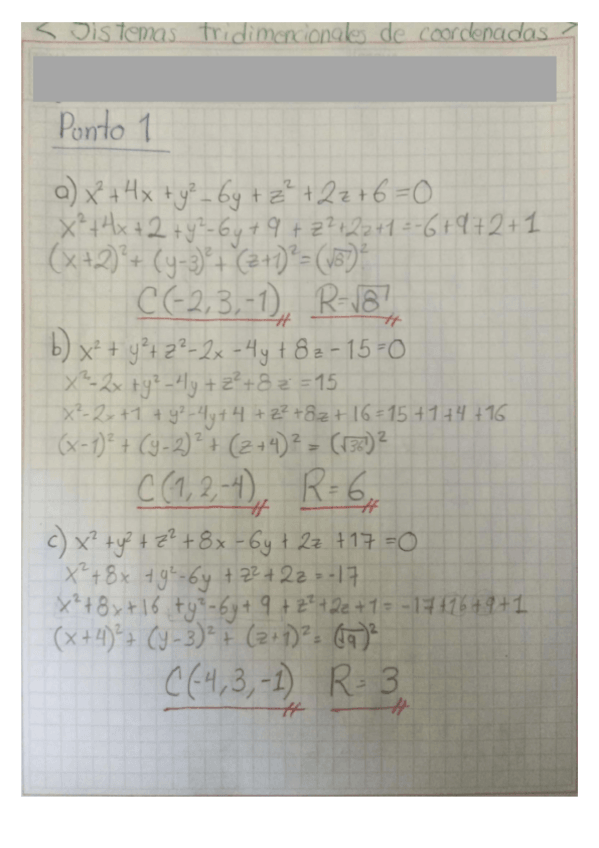 < Sistemas tridimencionales de coordenadas >
Punto 1
a) x² + 4x + y² - 6y + z² + 2z + 6 = 0
x² + 4x + 2 + y² - 6y + 9 + z² + 2z + 1 = -6 + 9 + 2 + 1
(x + 2)² + (y - 3)² + (z + 1)² = (√8)²
C(-2, 3, -1) R = √8
b) x² + y² + z² - 2x - 4y + 8z - 15 = 0
x² - 2x + y² - 4y + z² + 8z = 15
x² - 2x + 1 + y² - 4y + 4 + z² + 8z + 16 = 15 + 1 + 4 + 16
(x - 1)² + (y - 2)² + (z + 4)² = (√36)²
C(1, 2, -4) R = 6
c) x² + y² + z² + 8x - 6y + 2z + 17 = 0
x² + 8x + y² - 6y + z² + 2z = -17
x² + 8x + 16 + y² - 6y + 9 + z² + 2z + 1 = -17 + 16 + 9 + 1
(x + 4)² + (y - 3)² + (z + 1)² = (√9)²
C(-4, 3, -1) R = 3